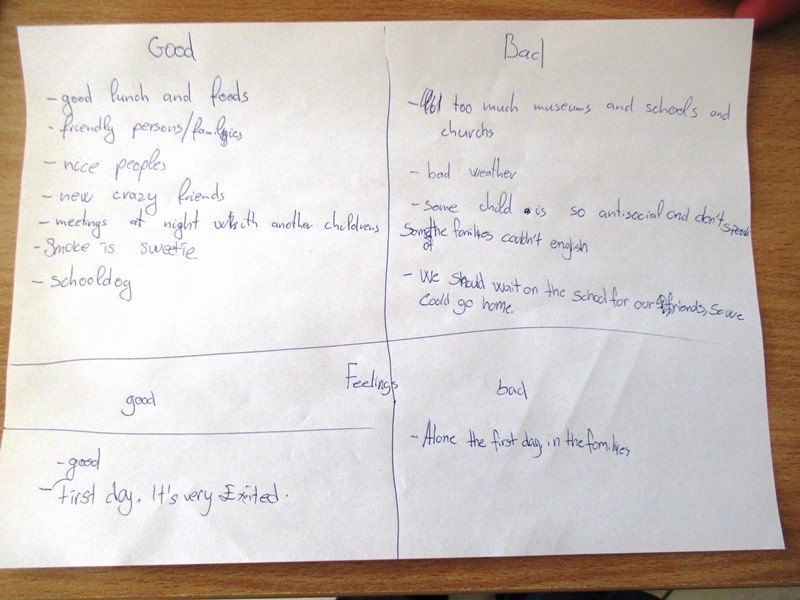 Good
- good lunch and foods
- friendly persons/families
- nice peoples
- new crazy friends
- meetings at night with another childrens
- Smoke is sweetie
- schooldog
Bad
- too much museums and schools and
churchs
- bad weather
- some child is so antisocial and don't speak
Some of the families couldn't english
- We should wait on the school for our friends, so we
could go home.
Feelings
good
- good
- First day. It's very Exited.
bad
- Alone the first day in the families